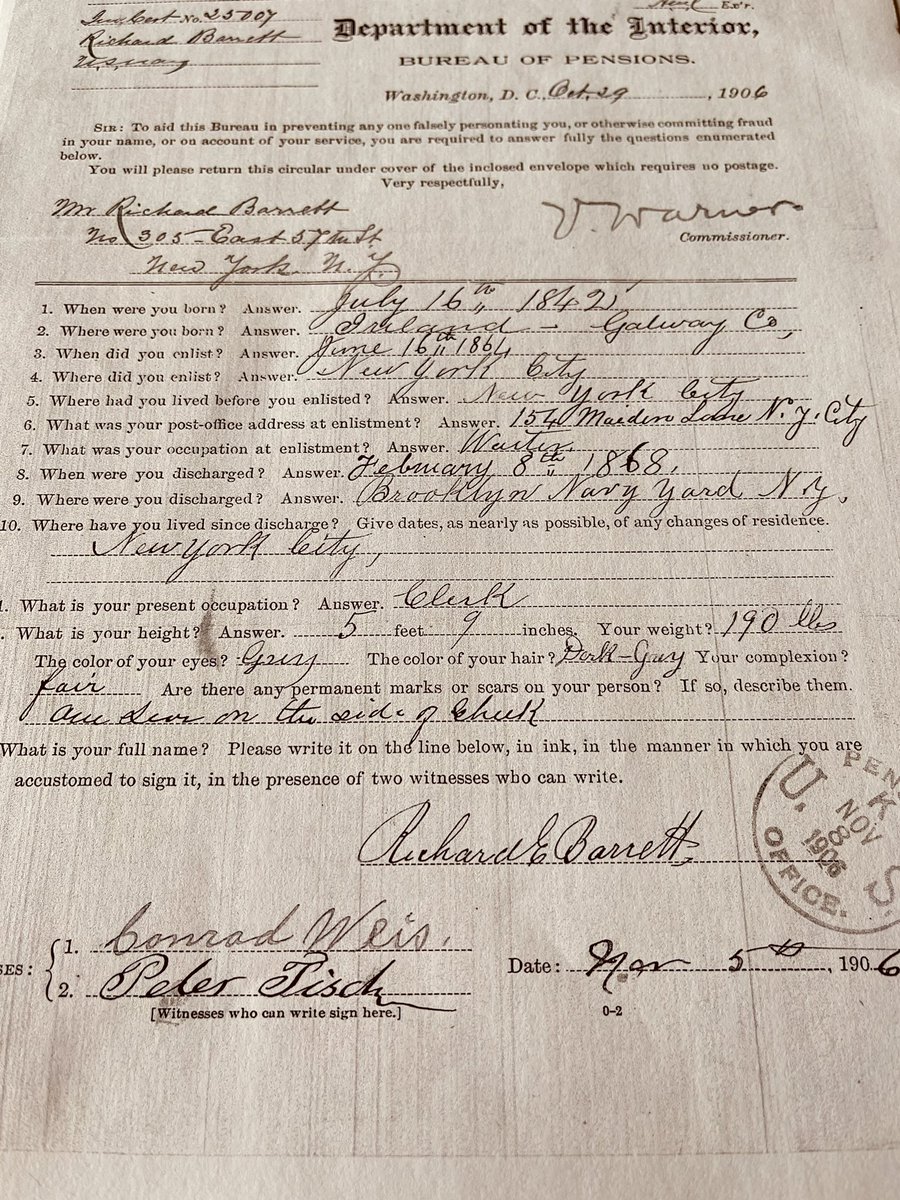 Inv. Cert No. 25007
Ex'r.
Richard Barrett
U.S. Navy
Department of the Interior,
BUREAU OF PENSIONS.
Washington, D. C., Oct. 29, 1906
SIR: To aid this Bureau in preventing any one falsely personating you, or otherwise committing fraud
in your name, or on account of your service, you are required to answer fully the questions enumerated
below.
You will please return this circular under cover of the inclosed envelope which requires no postage.
Very respectfully,
Mr Richard Barrett
No 305 - East 57th St
New York. N.Y.
V. Warner
Commissioner.
1. When were you born? Answer. July 16th 1842,
2. Where were you born? Answer. Ireland - Galway Co,
3. When did you enlist? Answer. June 16th 1864
4. Where did you enlist? Answer. New York City
5. Where had you lived before you enlisted? Answer. New York City
6. What was your post-office address at enlistment? Answer. 154 Maiden Lane N.Y. City
7. What was your occupation at enlistment? Answer. Waiter.
8. When were you discharged? Answer. February 8th 1868.
9. Where were you discharged? Answer. Brooklyn Navy Yard N.Y,
10. Where have you lived since discharge? Give dates, as nearly as possible, of any changes of residence.
New York City,
1. What is your present occupation? Answer. Clerk
. What is your height? Answer. 5 feet 9 inches. Your weight? 190 lbs
The color of your eyes? Grey The color of your hair? Dark-Gray Your complexion?
fair Are there any permanent marks or scars on your person? If so, describe them.
One Scar on the side of Cheek
What is your full name? Please write it on the line below, in ink, in the manner in which you are
accustomed to sign it, in the presence of two witnesses who can write.
Richard E Barrett.
U. S. PEN
OFFICE.
NOV
8
1906
1. Conrad Weis.
SES:
2. Peter Tisch
Date: Nov 5th, 1906
[Witnesses who can write sign here.]
0-2